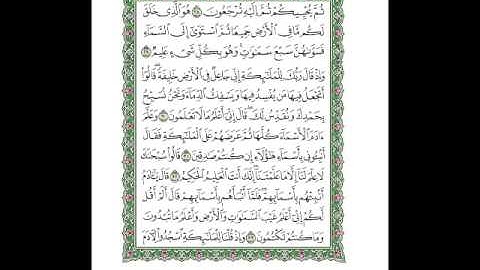 ثُمَّ يُحْيِيكُمْ ثُمَّ إِلَيْهِ تُرْجَعُونَ ٢٨ هُوَ الَّذِي خَلَقَ
لَكُم مَّا فِي الْأَرْضِ جَمِيعًا ثُمَّ اسْتَوَىٰ إِلَى السَّمَاءِ
فَسَوَّاهُنَّ سَبْعَ سَمَٰوَٰتٍ ۚ وَهُوَ بِكُلِّ شَيْءٍ عَلِيمٌ ٢٩
وَإِذْ قَالَ رَبُّكَ لِلْمَلَٰئِكَةِ إِنِّي جَاعِلٌ فِي الْأَرْضِ خَلِيفَةً ۖ قَالُوا
أَتَجْعَلُ فِيهَا مَن يُفْسِدُ فِيهَا وَيَسْفِكُ الدِّمَاءَ وَنَحْنُ نُسَبِّحُ
بِحَمْدِكَ وَنُقَدِّسُ لَكَ ۖ قَالَ إِنِّي أَعْلَمُ مَا لَا تَعْلَمُونَ ٣٠ وَعَلَّمَ
ءَادَمَ الْأَسْمَاءَ كُلَّهَا ثُمَّ عَرَضَهُمْ عَلَى الْمَلَٰئِكَةِ فَقَالَ
أَنۢبِـُٔونِي بِأَسْمَاءِ هَٰؤُلَاءِ إِن كُنتُمْ صَٰدِقِينَ ٣١ قَالُوا سُبْحَٰنَكَ
لَا عِلْمَ لَنَا إِلَّا مَا عَلَّمْتَنَا ۖ إِنَّكَ أَنتَ الْعَلِيمُ الْحَكِيمُ ٣٢ قَالَ يَٰٓـَٔادَمُ
أَنۢبِئْهُم بِأَسْمَائِهِمْ ۖ فَلَمَّا أَنۢبَأَهُم بِأَسْمَائِهِمْ قَالَ أَلَمْ أَقُل
لَّكُمْ إِنِّي أَعْلَمُ غَيْبَ السَّمَٰوَٰتِ وَالْأَرْضِ وَأَعْلَمُ مَا تُبْدُونَ
وَمَا كُنتُمْ تَكْتُمُونَ ٣٣ وَإِذْ قُلْنَا لِلْمَلَٰئِكَةِ اسْجُدُوا لِءَادَمَ